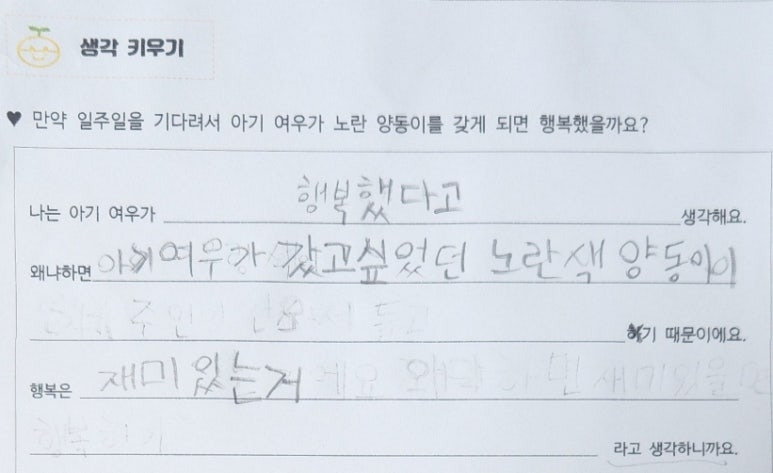 생각 키우기
♥ 만약 일주일을 기다려서 아기 여우가 노란 양동이를 갖게 되면 행복했을까요?
나는 아기 여우가 행복했다고 생각해요.
왜냐하면 아기여우가 갔고싶었던 노란색 양동이이
기 때문이에요.
행복은 재미있는거
라고 생각하니까요.